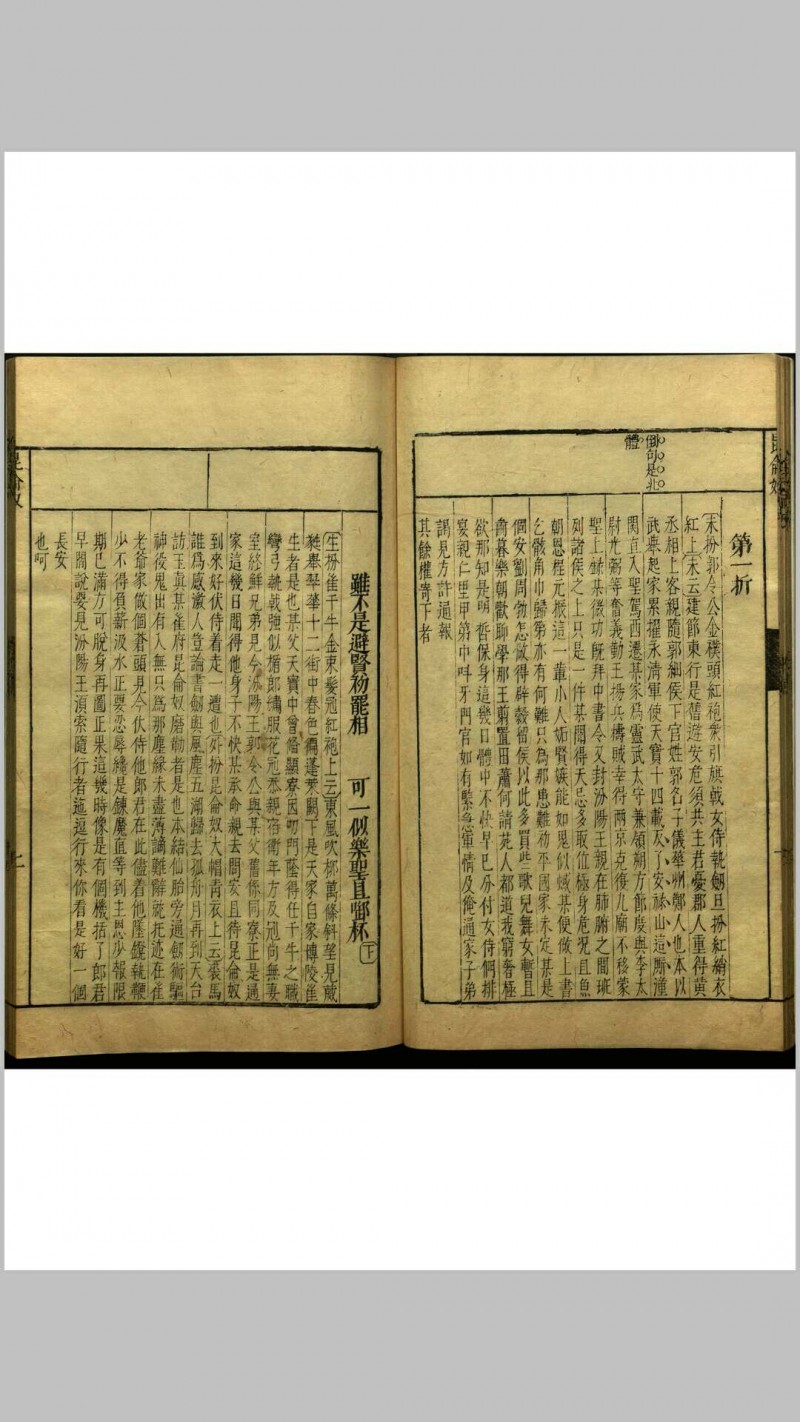 倒句是北
體
第一折
末扮郭令公金幞頭紅袍衆引旗戟女侍執劍旦扮紅綃衣
紅上末云建節東行是舊遊安危須共主君憂郡人重得黃
丞相上客親隨郭細侯下官姓郭名子儀華州鄭人也本以
武舉起家累擢永清軍使天寶十四載反了安祿山這厮潼
関直入聖駕西遷某家爲靈武太守兼領朔方節度與李太
尉光弼等奮義勤王揚兵擣賊幸得兩京克復九廟不移蒙
聖上錄某微功既拜中書令又封汾陽王親在肺腑之間班
列諸侯之上只是一件某聞得天忌多取位極身危况且魚
朝恩程元振這一輩小人妬賢嫉能如鬼似蜮某便做上書
乞骸角巾歸第亦有何難只為那患難初平國家未定某是
個安劉周勃怎做得辟穀留侯以此多買些歌兒舞女暫且
裔暮樂朝歡聊學那王翦置田蕭何請苑人都道我窮奢極
欲那知是明哲保身這幾日體中不快早已分付女侍們排
宴親仁里甲第中叫牙門官如有緊急軍情及俺通家子弟
謁見方許通報
其餘權寄下者
雖不是避賢初罷相 可一似樂聖且啣杯下
生扮崔千牛金束髮冠紅袍上云東風吹柳萬條斜望見葳
蕤舉翠華十二街中春色徧蓬萊闕下是天家自家博陵崔
生者是也某父天寶中曾脩顯寮因叨門蔭得任千牛之職
彎弓執戟強似楯郎繡服花冠忝親宿衛年方及冠尚無妻
室終鮮兄弟見今汾陽王郭令公與某父舊係同寮正是通
家這幾日聞得他身子不快某承命親去問安且待昆侖奴
到來好伏侍着走一遭也外扮昆侖奴大帽青衣上云裘馬
誰爲感激人豈論書劍與風塵五湖歸去孤舟月再到天台
訪玉真某崔府昆侖奴磨勒者是也本結仙胎旁通劍術驅
神役鬼出有入無只爲那塵緣未盡薄謫難辭就托迹在崔
老爺家做個蒼頭見今伏侍他郎君在此儘着他墜鐙執鞭
少不得負薪汲水正要忍辱纔是鍊魔直等到主恩少報限
期已滿方可脫身再圖正果這幾時像是有個機括了郎君
早間說要見汾陽王須索隨行者迤邐行來你看是好一個
長安
也呵